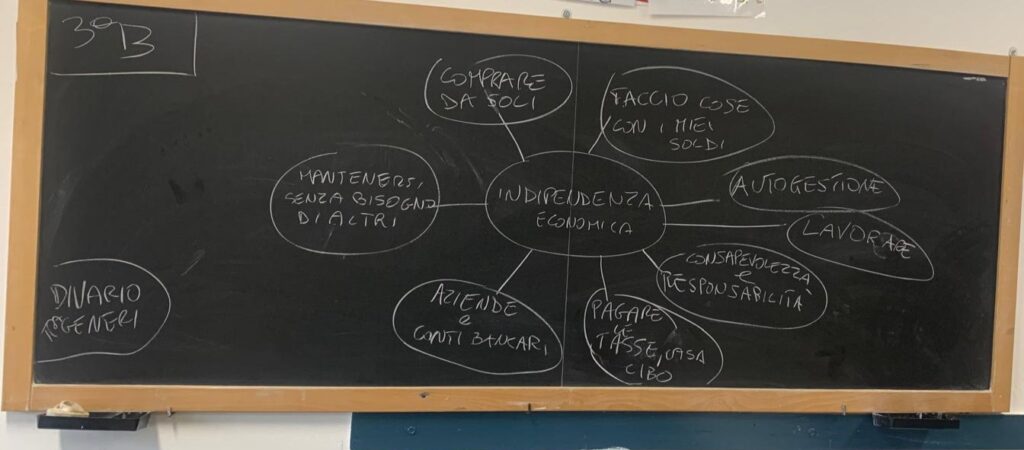 3°B
COMPRARE
DA SOLI
FACCIO COSE
CON I MIEI
SOLDI
MANTENERSI
SENZA BISOGNO
DI ALTRI
INDIPENDENZA
ECONOMICA
AUTOGESTIONE
LAVORARE
CONSAPEVOLEZZA
e
RESPONSABILITÀ
AZIENDE
e
CONTI BANCARI
PAGARE
LE
TASSE, CASA
CIBO
DIVARIO
GENERI